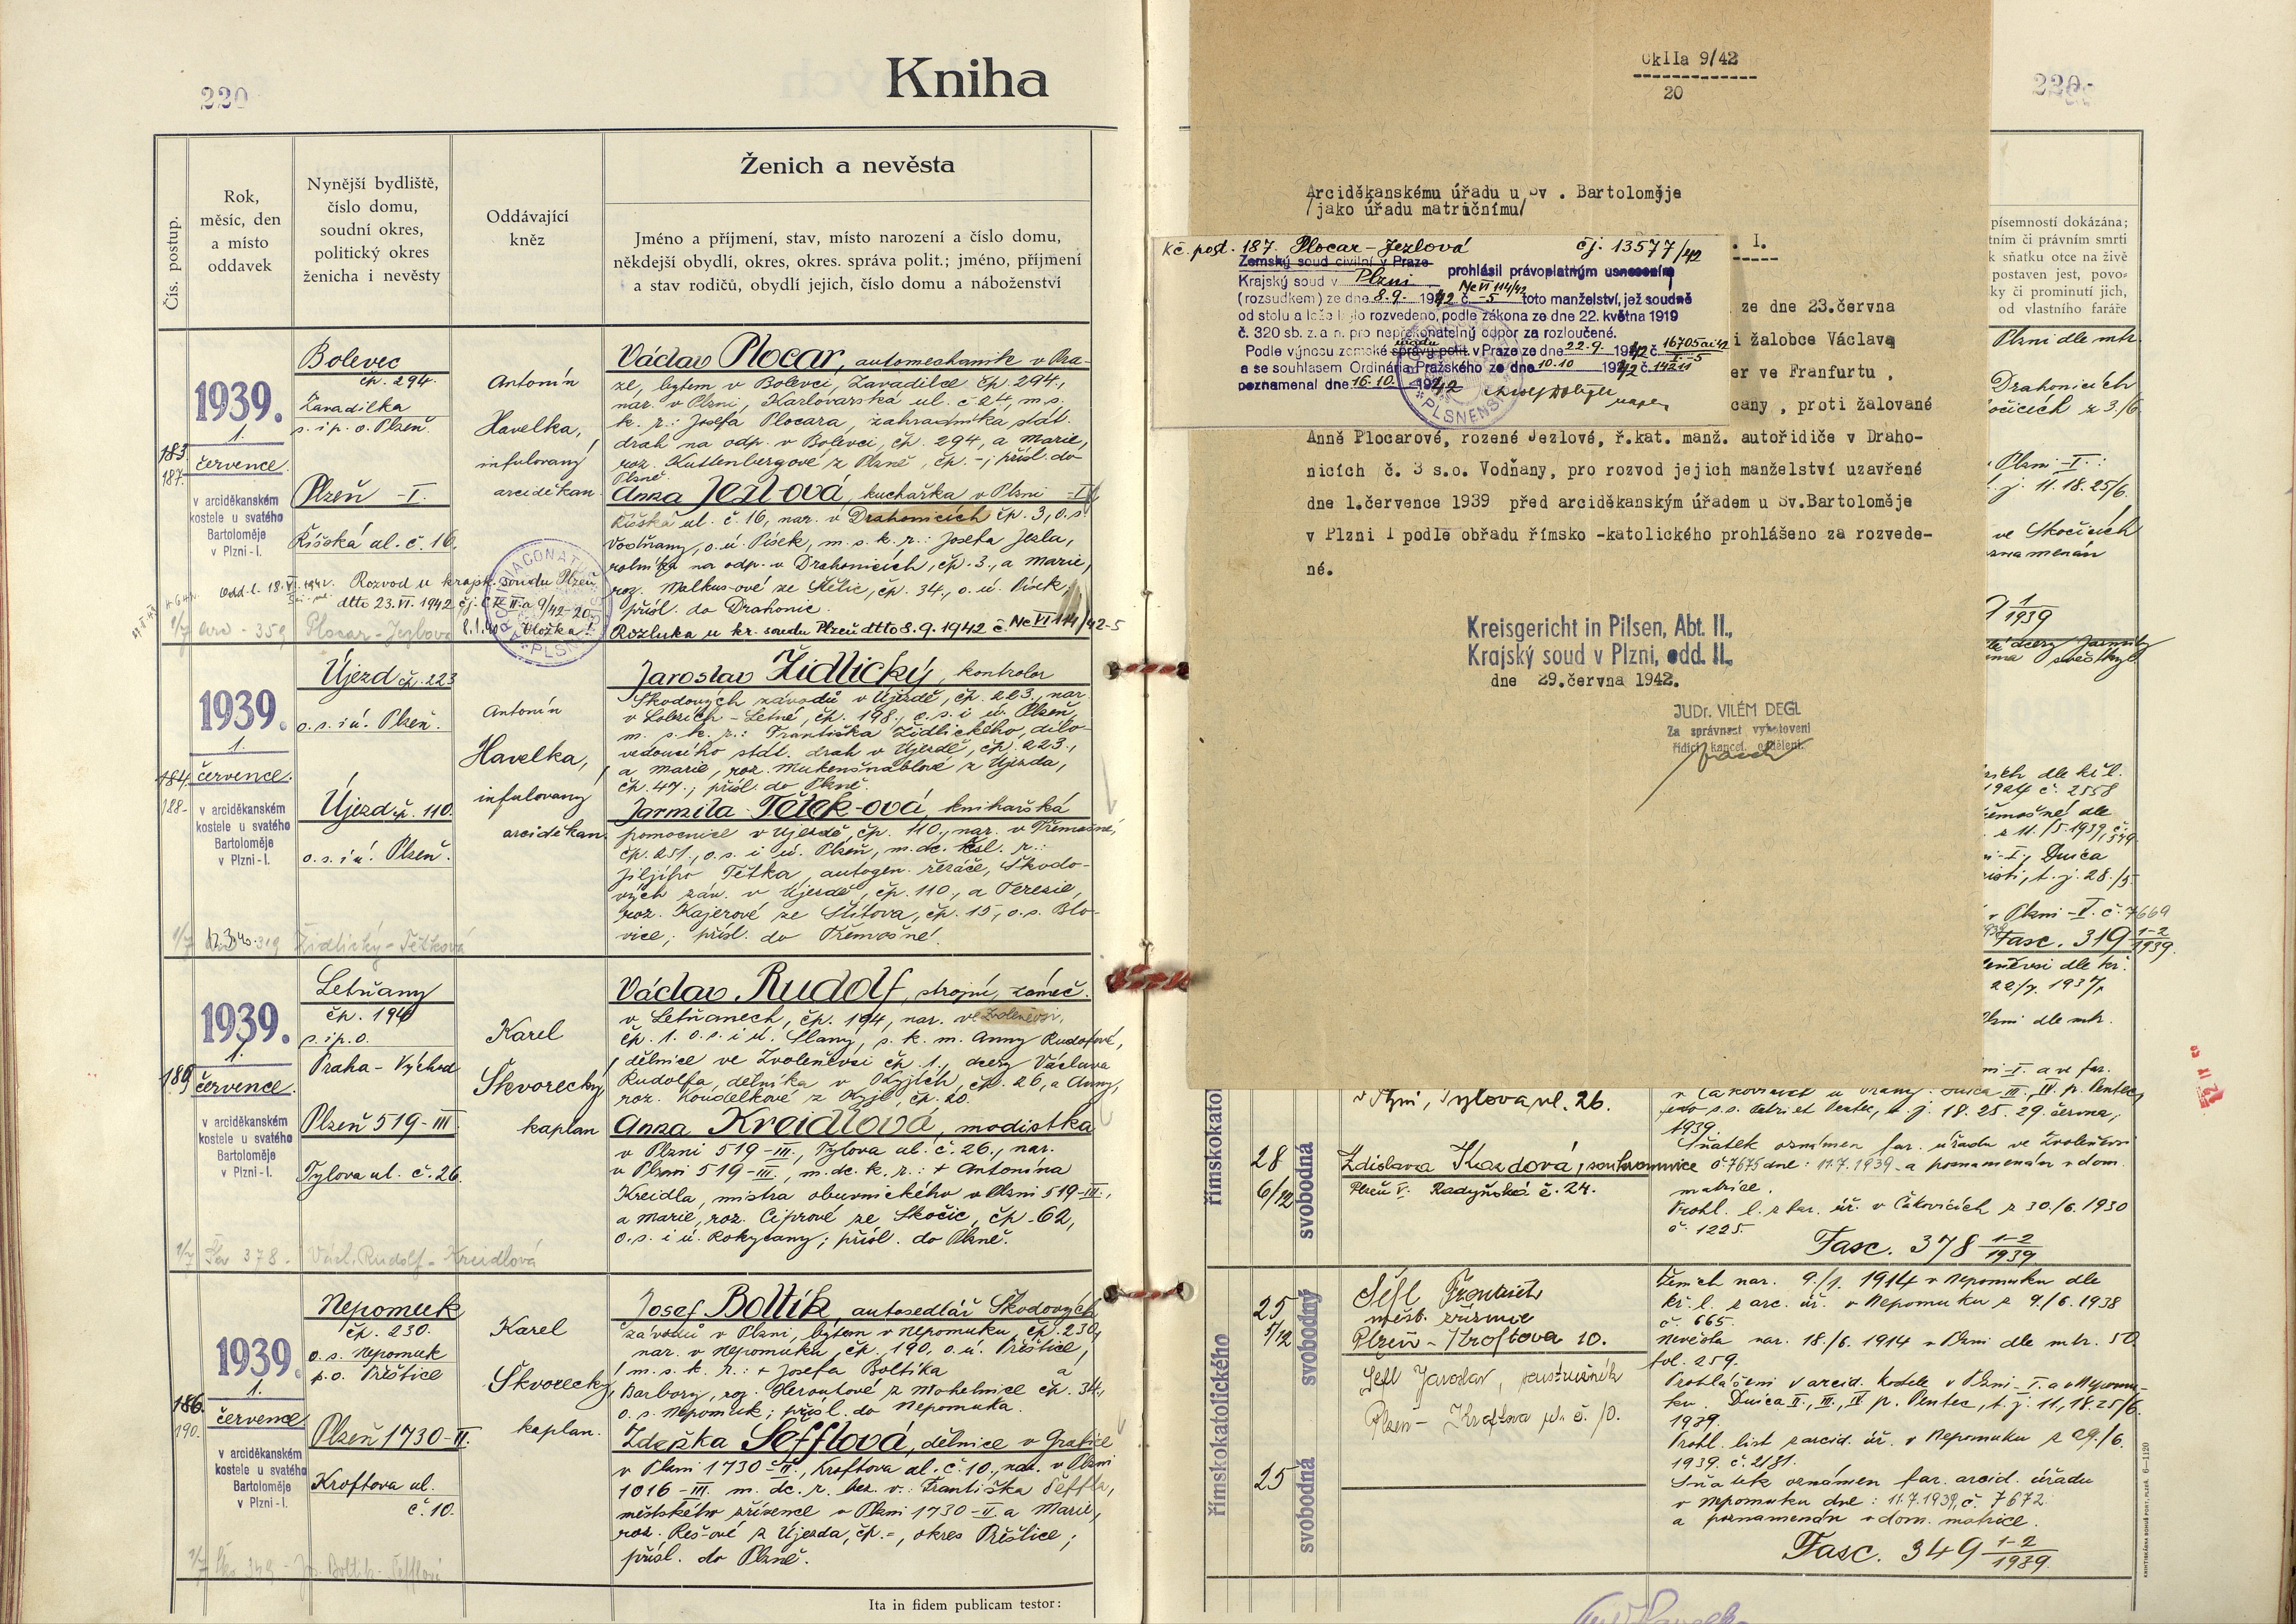 220
Kniha
Čís. postup.
Rok,
měsíc, den
a místo
oddavek
Nynější bydliště,
číslo domu,
soudní okres,
politický okres
ženicha i nevěsty
Oddávající
kněz
Ženich a nevěsta
Jméno a příjmení, stav, místo narození a číslo domu,
někdejší obydlí, okres, okres. správa polit.; jméno, příjmení
a stav rodičů, obydlí jejich, číslo domu a náboženství
183.
187.
1939.
1.
července.
v arciděkanském
kostele u svatého
Bartoloměje
v Plzni-I.
Bolevec
čp. 294.
Zavadilka
s. i p. o. Plzeň.
Plzeň - I.
Říšská ul. č. 16.
Antonín
Havelka,
infulovaný
arciděkan
Václav Plocar, automechanik v Pra-
ze, bytem v Bolevci, Zavadilce čp. 294.,
nar. v Plzni, Karlovarská ul. č 24, m. s.
k. r.: Josefa Plocara, zahradníka stát.
drah na odp. v Bolevci, čp. 294, a Marie,
roz. Kuttenbergové z Plzně, čp. -; přísl. do
Plzně.
Anna Jezlová, kuchařka v Plzni - I
Říšská ul. č. 16, nar. v Drahonicích čp. 3, o. s.
Vodňany, o. ú. Písek, m. s. k. r.: Josefa Jezla,
rolníka na odp. v Drahonicích, čp. 3., a Marie,
roz. Malkus-ové ze Skělic, čp. 34., o. ú. Písek;
přísl. do Drahonic.
Rozvod u krajsk. soudu Plzeň
dtto 23. VI. 1942 čj. Ck II a 9/42-20
Vložka!
Plocar - Jezlová
Rozluka u kr. soudu Plzeň dtto 8. 9. 1942 č. Nc VI 114/42-5
184.
188.
1939.
1.
července.
v arciděkanském
kostele u svatého
Bartoloměje
v Plzni-I.
Újezd čp. 223
o. s. i ú. Plzeň.
Újezd čp. 110.
o. s. i ú. Plzeň.
Antonín
Havelka,
infulovaný
arciděkan.
Jaroslav Židlický, kontrolor
Škodových závodů v Újezdě, čp. 223., nar.
v Lobzích - Letné, čp. 198., o. s. i ú. Plzeň,
m. s. k. r.: Františka Židlického, dílo-
vedoucího stát. drah v Újezdě, čp. 223.,
a Marie, roz. Mukenšnáblové z Újezda,
čp. 47.; přísl. do Plzně.
Jarmila Tětek-ová, knihařská
pomocnice v Újezdě, čp. 110., nar. v Třemošné,
čp. 251., o. s. i ú. Plzeň, m. dc. čsl. r.:
Jiljího Tětka, autogen. řezače, Škodo-
vých záv. v Újezdě, čp. 110., a Terezie,
roz. Kajerové ze Štítova, čp. 15, o. s. Blo-
vice; přísl. do Třemošné.
Židlický - Tětková
189
1939.
1.
července.
v arciděkanském
kostele u svatého
Bartoloměje
v Plzni-I.
Letňany
čp. 194
s. i p. o.
Praha - Východ
Plzeň 519 - III
Tylova ul. č. 26.
Karel
Škvorecký,
kaplan
Václav Rudolf, strojní zámeč.
v Letňanech, čp. 194, nar. ve Zvoleněvsi,
čp. 1. o. s. i ú. Slaný, s. k. m. Anny Rudolfové,
dělnice ve Zvoleněvsi čp. 1., dcery Václava
Rudolfa, dělníka v Kyjích, čp. 26, a Anny,
roz. Koudelkové z Kyjí čp. 20.
Anna Kreidlová, modistka
v Plzni 519 - III., Tylova ul. č. 26., nar.
v Plzni 519 - III., m. dc. k. r.: + Antonína
Kreidla, mistra obuvnického v Plzni 519 - III.,
a Marie, roz. Ciprové ze Skočic, čp. 62,
o. s. i ú. Rokycany; přísl. do Plzně.
378. Václ. Rudolf - Kreidlová
186.
190.
1939.
1.
července.
v arciděkanském
kostele u svatého
Bartoloměje
v Plzni-I.
Nepomuk
čp. 230.
o. s. Nepomuk
p. o. Přeštice
Plzeň 1730 - II.
Kroftova ul.
č. 10.
Karel
Škvorecký,
kaplan.
Josef Boltík, autosedlář Škodových
závodů v Plzni, bytem v Nepomuku, čp. 230,
nar. v Nepomuku, čp. 190, o. ú. Přeštice,
m. s. k. r.: + Josefa Boltíka a
Barbory, roz. Heroutové z Mohelnice čp. 34.,
o. s. Nepomuk; přísl. do Nepomuka.
Zdeňka Šefflová, dělnice v Grafice
v Plzni 1730 - II., Kroftova ul. č. 10., nar. v Plzni
1016 - III. m. dc. r. bez. v.: Františka Šeffla,
městského zřízence v Plzni 1730 - II a Marie,
roz. Reš-ové z Újezda, čp. -, okres Přeštice;
přísl. do Plzně.
Ita in fidem publicam testor:
Ck IIa 9/42
20
Arciděkanskému úřadu u Sv . Bartoloměje
/jako úřadu matričnímu/
Kč. post. 187. Plocar - Jezlová čj. 13577/42
Zemský soud civilní v Praze
Krajský soud v Plzni prohlásil právoplatným usnesením
(rozsudkem) ze dne 8. 9. 1942 č. Nc VI 114/42 -5 toto manželství, jež soudně
od stolu a lože bylo rozvedeno, podle zákona ze dne 22. května 1919
č. 320 sb. z. a n. pro nepřekonatelný odpor za rozloučené.
Podle výnosu zemské správy polit. v Praze ze dne 22. 9. 1942 č. 16705 ai 42
a se souhlasem Ordinária Pražského ze dne 10. 10 1942 č. 14211
poznamenal dne 16. 10. 1942
. I.
ze dne 23.června
i žalobce Václava
er ve Franfurtu ,
cany , proti žalované
Anně Plocarové, rozené Jezlové, ř.kat. manž. autořidiče v Draho-
nicích č. 3 s.o. Vodňany, pro rozvod jejich manželství uzavřené
dne 1.července 1939 před arciděkanským úřadem u Sv.Bartoloměje
v Plzni I podle obřadu římsko -katolického prohlášeno za rozvede-
né.
Kreisgericht in Pilsen, Abt. II.,
Krajský soud v Plzni, odd. II.,
dne 29.června 1942.
JUDr. VILÉM DEGL
Za správnost vyhotovení
řídicí kancel. oddělení:
220
písemností dokázána;
tním či právním smrti
k sňatku otce na živě
postaven jest, povo-
ky či prominutí jich,
od vlastního faráře
Plzni dle mtr.
Drahonicích
Plzni - I.:
t. j. 11. 18. 25/6.
ve Skočicích
1939
Fasc. 319 1-2
1939.
římskokatol
28
6/12
svobodná
v Plzni, Tylova ul. 26.
Zdislava Kazdová, soukromnice
Plzeň V. Radyňská č. 24.
t. j. 18. 25. 29. června,
1939.
Sňatek oznámen far. úřadu ve Zvoleněvsi
č. 7675 dne: 11.7.1939 a poznamenán v dom.
matrice.
Prohl. l. z far. úř. v Čakovicích z 30./6. 1930
č. 1225.
Fasc. 378 1-2
1939
římskokatolického
25
svobodný
25
svobodná
Šefl František
měst. zřízenec
Plzeň - Kroftova 10.
Šefl Jaroslav, soustružník
Plzeň - Kroftova ul. č. 10.
Ženich nar. 9./1. 1914 v Nepomuku dle
kř. l. z arc. úř. v Nepomuku z 9./6. 1938
č. 665.
Nevěsta nar. 18./6. 1914 v Plzni dle mtr. 50.
fol. 259.
Prohlášeni v arcid. kostele v Plzni - I. a v Nepomu-
ku. Dnica II., III., IV p. Pentec., t. j. 11, 18. 25/6.
1939.
Prohl. list z arcid. úř. v Nepomuku z 29./6.
1939. č. 2181.
Sňatek oznámen far. arcid. úřadu
v Nepomuku dne: 11.7.1939, č. 7672
a poznamenán v dom. matrice.
Fasc. 349 1-2
1939.